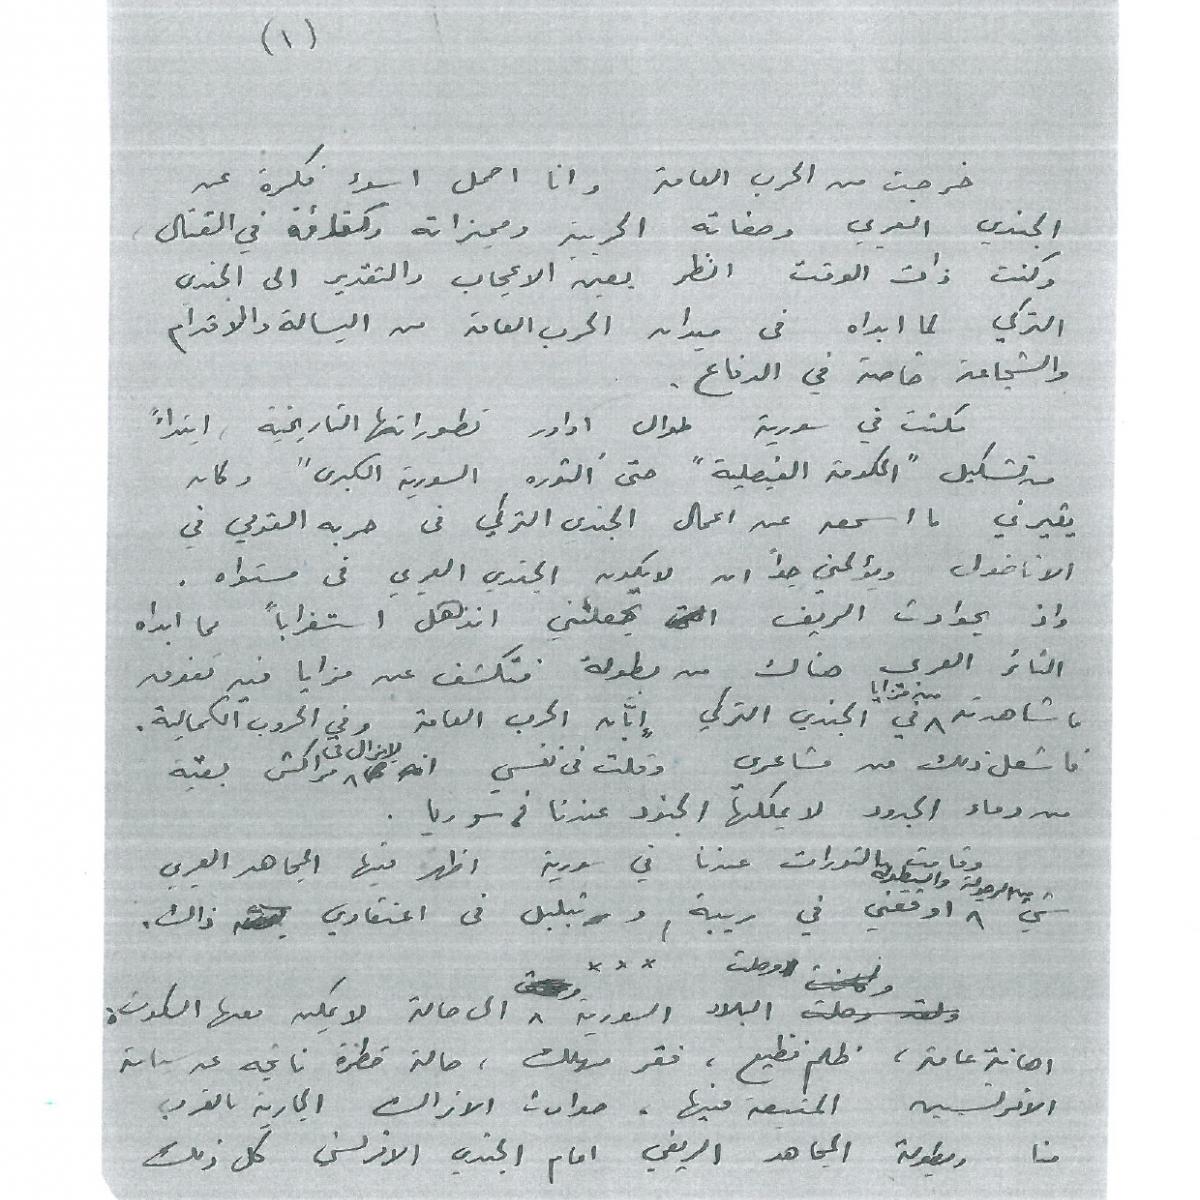 (١)
خرجت من الحرب العامة وانا احمل اسوء فكرة عن
الجندي العربي وصفاته الحربية ومميزاته وكفائته في القتال،
وكنت ذات الوقت انظر بعين الاعجاب والتقدير الى الجندي
التركي لما ابداه في ميدان الحرب العامة من البسالة والاقدام
والشجاعة خاصة في الدفاع.
مكثت في سورية طوال ادوار تطوراتها التاريخية، ابتداءً
من تشكيل "الحكومة الفيصلية" حتى "الثوره السورية الكبرى" وكان
يغيرني ما اسمعه عن اعمال الجندي التركي في حربه القومي في
الاناضول ويؤلمني جداً ان لا يكون الجندي العربي في مستواه.
واذ بحوادث الريف تجعلني انذهل استغراباً مما ابداه
الثائر العربي هناك من بطولة فتكشف عن مزايا فيه تفوق
ما شاهدته من مزايا في الجندي التركي إبَّان الحرب العامة وفي الحروب الكمالية.
فاشعل ذلك من مشاعري وقلت في نفسي انه لا يزال في مراكش بقية
من دماء الجدود لا يملكها الجنود عندنا في سوريا.
وقامت الثورات عندنا في سورية اظهر فيها المجاهد العربي
شيء من الرجولة والبطولة اوقعني في ريبة، و تبلبل في اعتقادي ذاك.
***
وصلت البلاد السورية الى حالة لا يمكن معها السكوت:
اهانة عامة، ظلم فظيع، فقر مهلك، حالة خطرة ناتجه عن سياسة
الافرنسيين المتبعة فيها. حوادث الاتراك الجارية بالقرب
منا وبطولة المجاهد الريفي امام الجندي الافرنسي كل ذلك